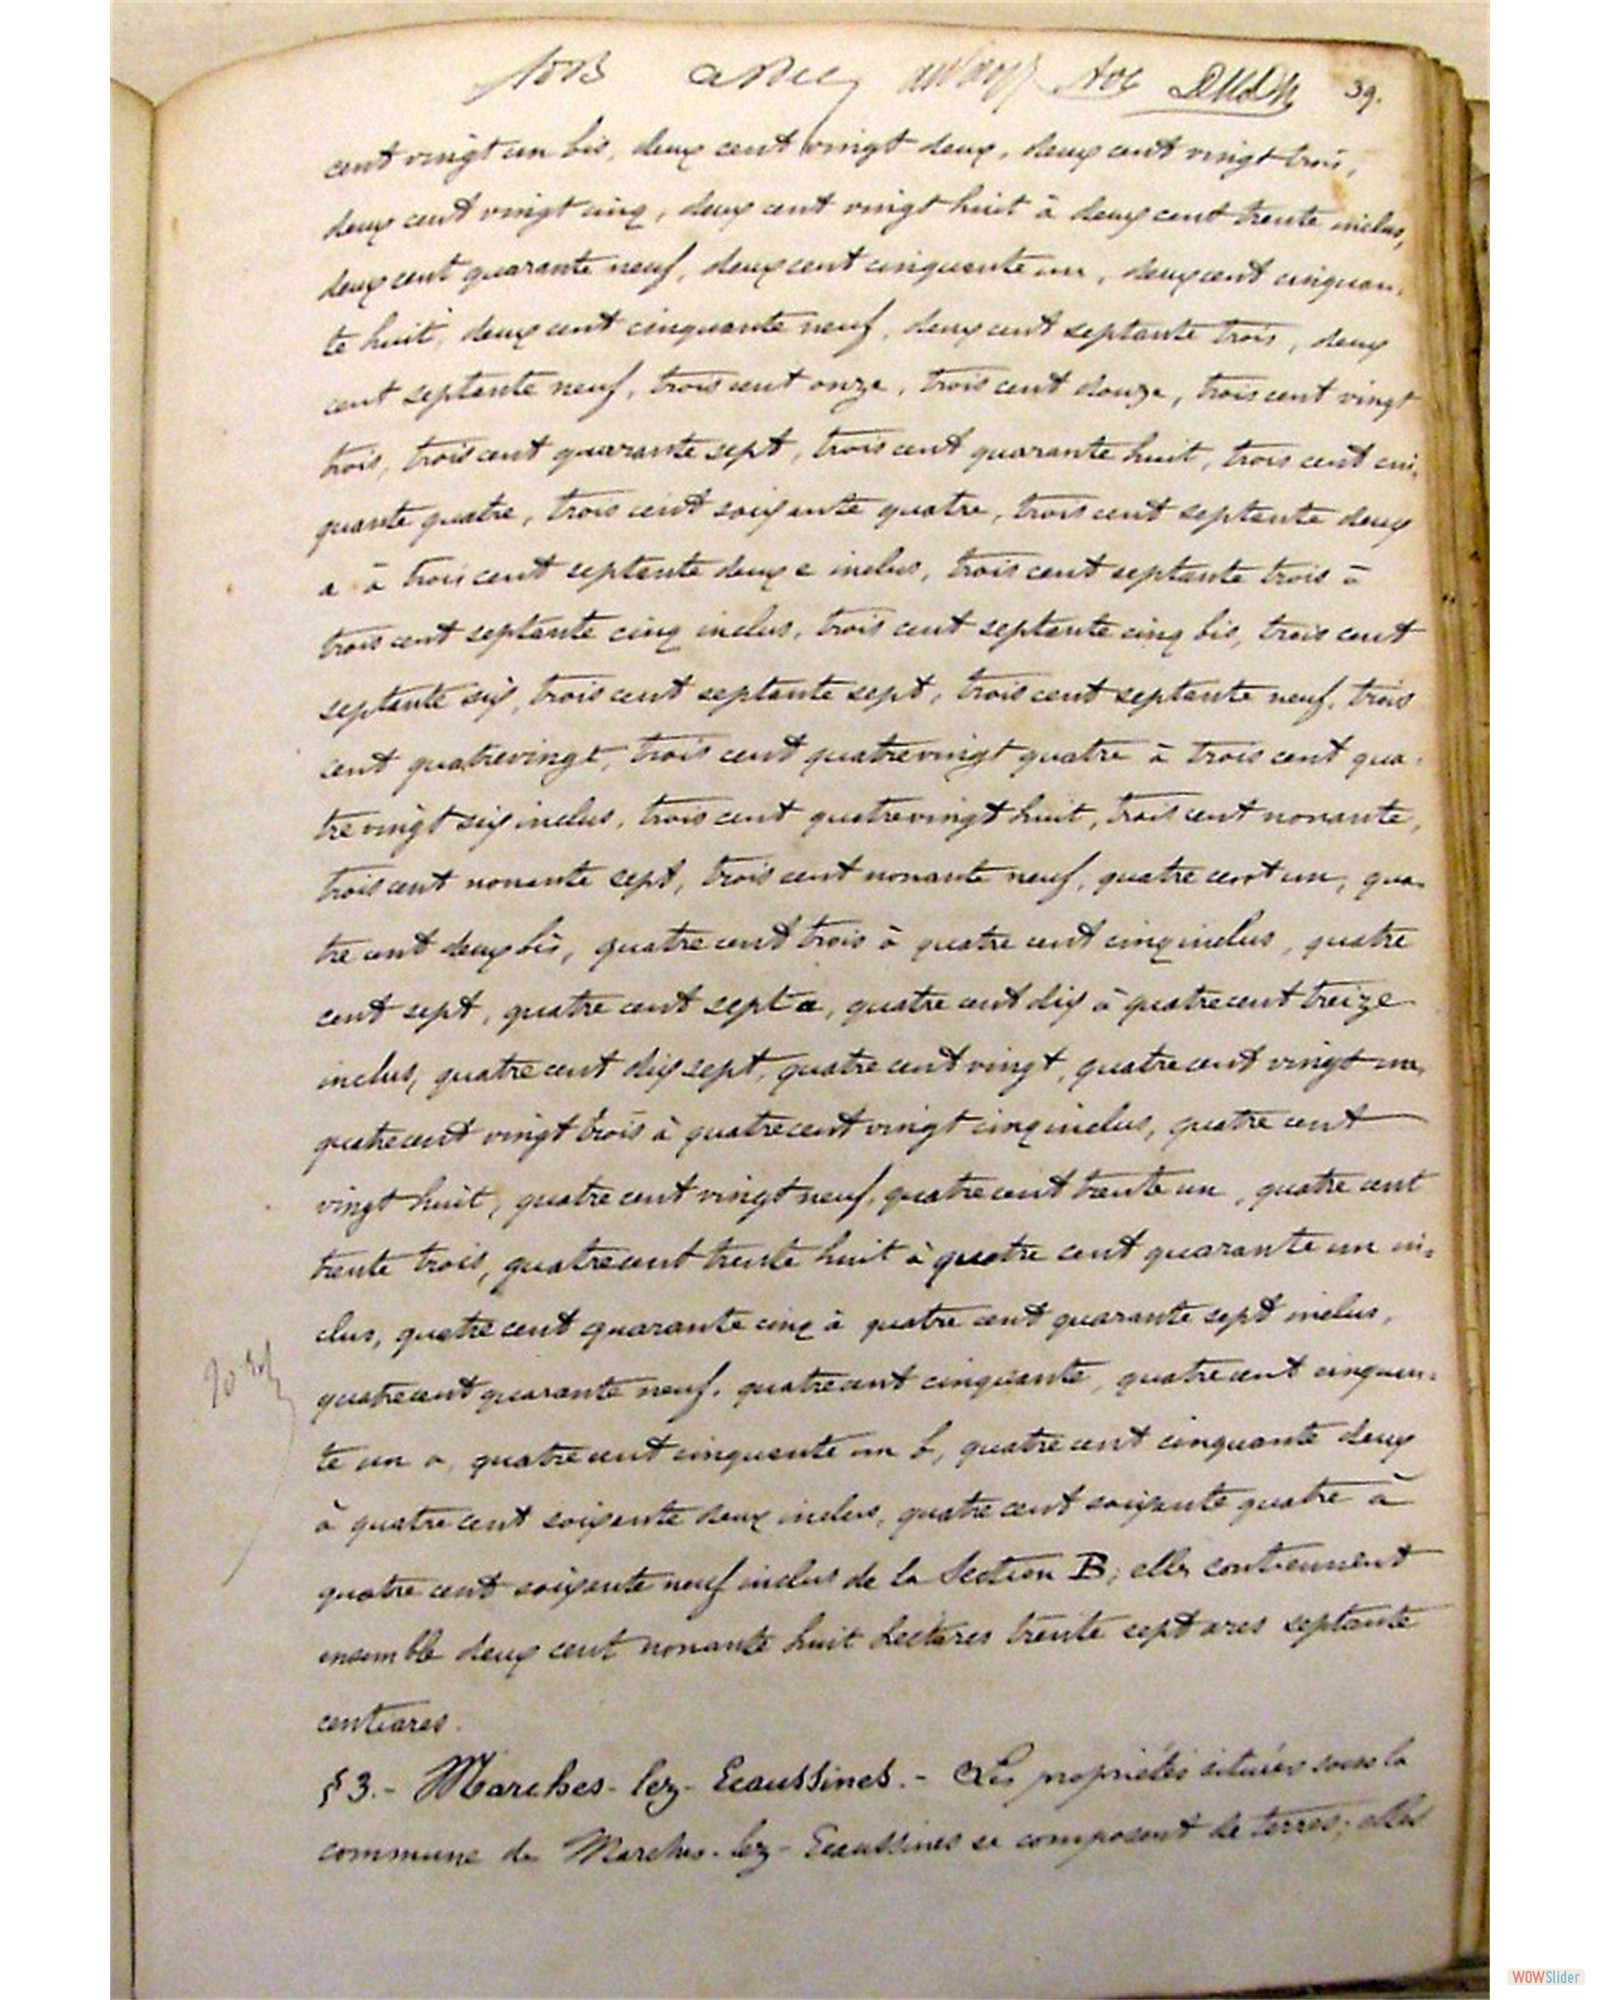 39.
cent vingt un bis, deux cent vingt deux, deux cent vingt trois,
deux cent vingt cinq, deux cent vingt huit à deux cent trente inclus,
deux cent quarante neuf, deux cent cinquante un, deux cent cinquan-
te huit, deux cent cinquante neuf, deux cent septante trois, deux
cent septante neuf, trois cent onze, trois cent douze, trois cent vingt
trois, trois cent quarante sept, trois cent quarante huit, trois cent cin-
quante quatre, trois cent soixante quatre, trois cent septante deux
a à trois cent septante deux e inclus, trois cent septante trois à
trois cent septante cinq inclus, trois cent septante cinq bis, trois cent
septante six, trois cent septante sept, trois cent septante neuf, trois
cent quatrevingt, trois cent quatrevingt quatre à trois cent qua-
tre vingt six inclus, trois cent quatrevingt huit, trois cent nonante,
trois cent nonante sept, trois cent nonante neuf, quatre cent un, qua-
tre cent deux bis, quatre cent trois à quatre cent cinq inclus, quatre
cent sept, quatre cent sept a, quatre cent dix à quatre cent treize
inclus, quatre cent dix sept, quatre cent vingt, quatre cent vingt un,
quatre cent vingt trois à quatre cent vingt cinq inclus, quatre cent
vingt huit, quatre cent vingt neuf, quatre cent trente un, quatre cent
trente trois, quatre cent trente huit à quatre cent quarante un in-
clus, quatre cent quarante cinq à quatre cent quarante sept inclus,
quatre cent quarante neuf, quatre cent cinquante, quatre cent cinquan-
te un a, quatre cent cinquante un b, quatre cent cinquante deux
à quatre cent soixante deux inclus, quatre cent soixante quatre à
quatre cent soixante neuf inclus de la Section B; elles contiennent
ensemble deux cent nonante huit hectares trente sept ares septante
centiares.
§ 3.- Marches-lez-Ecaussines.- Les propriétés situées sous la
commune de Marches-lez-Ecaussines se composent de terres; elles
WOWSlider